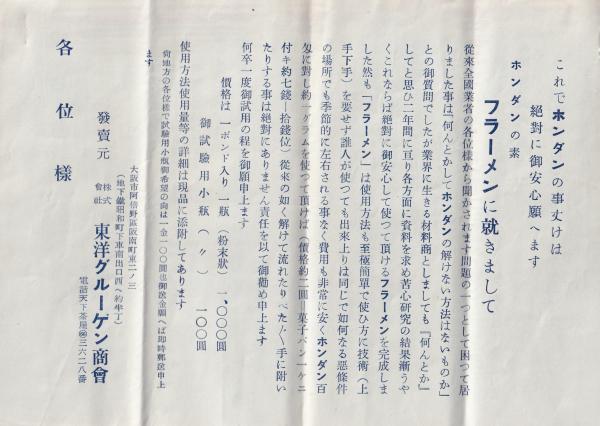 これでホンダンの事丈けは
絶對に御安心願へます
ホンダンの素
フラーメンに就きまして
從來全國業者の各位樣から聞かされます問題の一つとして困つて居
りました事は『何んとかしてホンダンの解けない方法はないものか』
との御質問でしたが業界に生きる材料商としましても『何んとか』
してと思ひ二年間に亘り各方面に資料を求め苦心研究の結果漸うや
くこれならば絶對に御安心して使つて頂けるフラーメンを完成しま
した然も「フラーメン」は使用方法も至極簡單で使ひ方に技術（上
手下手）を要せず誰人が使つても出來上りは同じで如何なる惡條件
の場所でも季節的に左右される事なく費用も非常に安くホンダン百
匁に對し約一グラムを使つて頂けば（價格約二圓―菓子パン一ケニ
付キ約七錢―拾錢位）從來の如く解けて流れたりべた〱手に附い
たりする事は絶對にありません責任を以て御勸め申上ます
何卒一度御試用の程を御願申上ます
價格は 一ポンド入り 一瓶 （粉末狀） 一、〇〇〇圓
御試驗用小瓶 （〃） 一〇〇圓
使用方法使用量等の詳細は現品に添附してあります
尚地方の各位樣で試驗用小瓶御希望の向は一金一〇〇圓也御送金願へば即時郵送申上
ます
大阪市阿倍野區阪南町東二ノ三
（地下鐵昭和町下車南出口西へ約半丁）
發賣元 株式會社 東洋グルーゲン商會
電話天下茶屋㊿三六二八番
各位樣